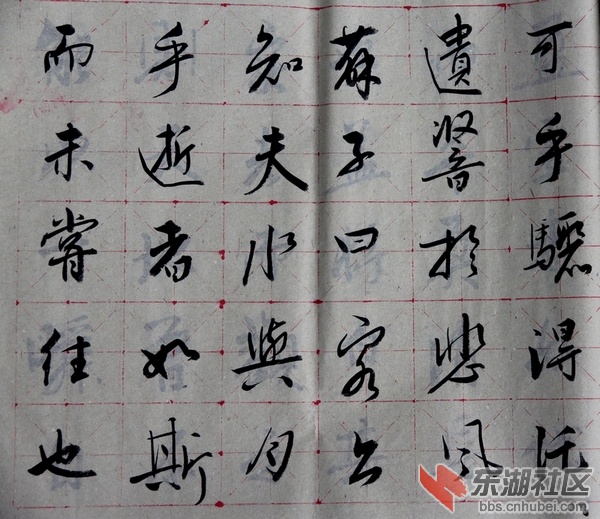 可乎驟得託
遺響於悲風
蘇子曰客亦
知夫水與月
乎逝者如斯
而未嘗往也
东湖社区
bbs.cnhubei.com